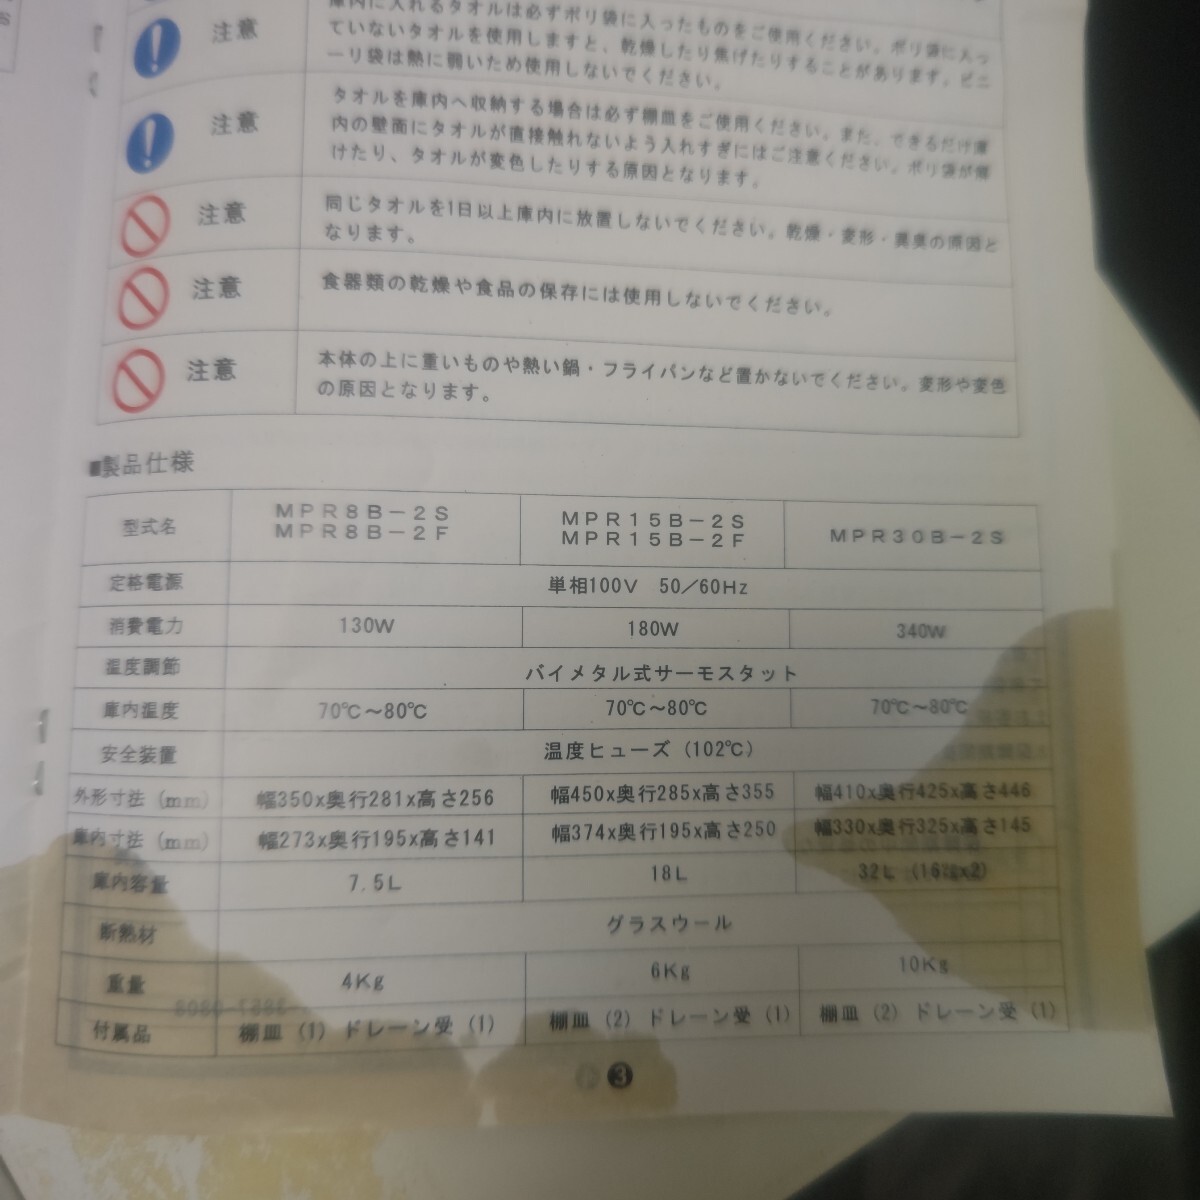 注意
庫内に入れるタオルは必ずポリ袋に入ったものをご使用ください。ポリ袋に入っ
ていないタオルを使用しますと、乾燥したり焦げたりすることがあります。ビニ
ーリ袋は熱に弱いため使用しないでください。
注意
タオルを庫内へ収納する場合は必ず棚皿をご使用ください。また、できるだけ庫
内の壁面にタオルが直接触れないよう入れすぎにはご注意ください。ポリ袋が解
けたり、タオルが変色したりする原因となります。
注意
同じタオルを1日以上庫内に放置しないでください。乾燥・変形・異臭の原因と
なります。
注意
食器類の乾燥や食品の保存には使用しないでください。
注意
本体の上に重いものや熱い鍋・フライパンなど置かないでください。変形や変色
の原因となります。
■製品仕様
型式名 MPR8B-2S MPR15B-2S MPR30B-2S
MPR8B-2F MPR15B-2F
定格電源 単相100V 50/60Hz
消費電力 130W 180W 340W
温度調節 バイメタル式サーモスタット
庫内温度 70℃～80℃ 70℃～80℃ 70℃～80℃
安全装置 温度ヒューズ（102℃）
外形寸法（mm） 幅350x奥行281x高さ256 幅450x奥行285x高さ355 幅410x奥行425x高さ446
庫内寸法（mm） 幅273x奥行195x高さ141 幅374x奥行195x高さ250 幅330x奥行325x高さ145
庫内容量 7.5L 18L 32L
断熱材 グラスウール
重量 4Kg 6Kg 10Kg
付属品 棚皿（1）ドレーン受（1） 棚皿（2）ドレーン受（1） 棚皿（2）ドレーン受（1）
3